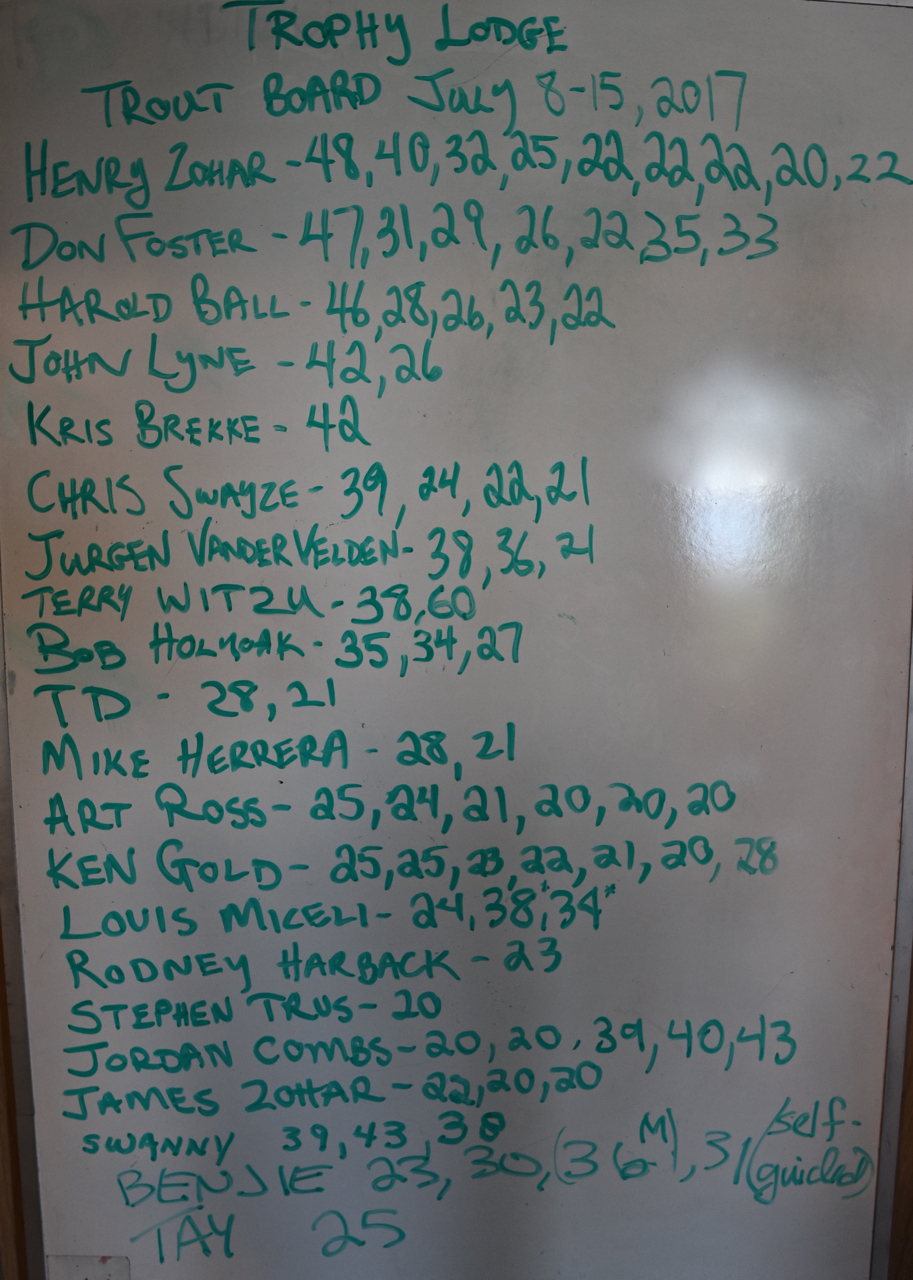 TROPHY LODGE
TROUT BOARD July 8-15, 2017
HENRY ZOHAR - 48, 40, 32, 25, 22, 22, 22, 20, 22
DON FOSTER - 47, 31, 29, 26, 22, 35, 33
HAROLD BALL - 46, 28, 26, 23, 22
JOHN LYNE - 42, 26
KRIS BREKKE - 42
CHRIS SWAYZE - 39, 24, 22, 21
JURGEN VANDERVELDEN - 38, 36, 21
TERRY WITZU - 38, 60
BOB HOLYOAK - 35, 34, 27
TD - 28, 21
MIKE HERRERA - 28, 21
ART ROSS - 25, 24, 21, 20, 20, 20
KEN GOLD - 25, 25, 23, 22, 21, 20, 28
LOUIS MICELI - 24, 38*, 34*
RODNEY HARBACK - 23
STEPHEN TRUS - 20
JORDAN COMBS - 20, 20, 39, 40, 43
JAMES ZOHAR - 22, 20, 20
SWANNY 39, 43, 38
BENJIE 23, 30, (36 M), 31 (self-guided)
TAY 25